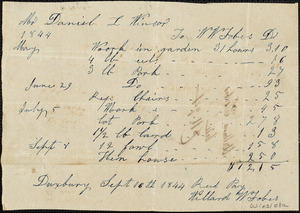 Mr Daniel L Winsor
1844 To W W Fobes Dr
May Work in garden 31 hours 3.10
4 lb 16
3 lb Pork 27
June 29 Do 93
Chairs 25
July 5 Work 45
Pork 2 78
1 1/2 lb Lard 13
Sept 8 12 fowl 1 58
Then house 2 50
$12,15
Duxbury Sept 10th 1844 Recd Pay
Willard W Fobes